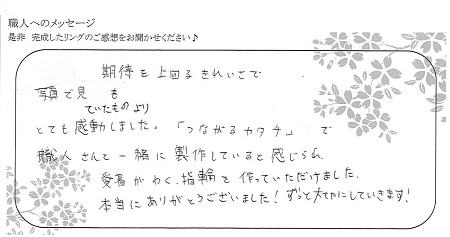 職人へのメッセージ
是非 完成したリングのご感想をお聞かせください♪
期待を上回るきれいさで
写真で見ていたものよりも
とても感動しました。「つながるカタチ」で
職人さんと一緒に製作していると感じられ
愛着がわく指輪を作っていただけました。
本当にありがとうございました!ずっと大切にしていきます!